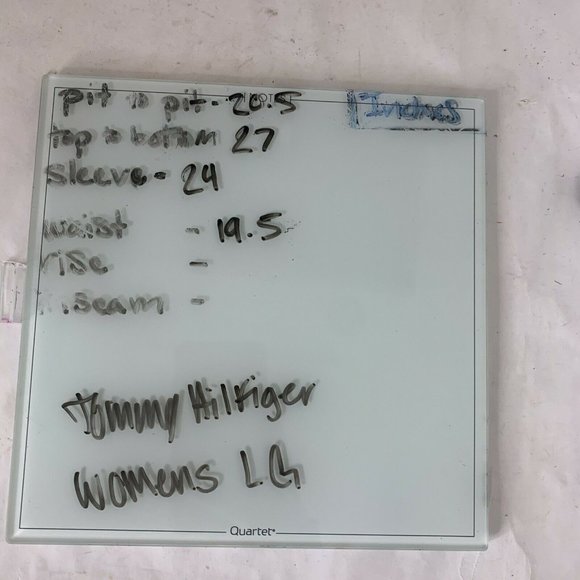 pit to pit - 20.5 Inches
top to bottom 27
Sleeve - 24
waist - 19.5
rise -
inseam -
Tommy Hilfiger
Womens LG
Quartet